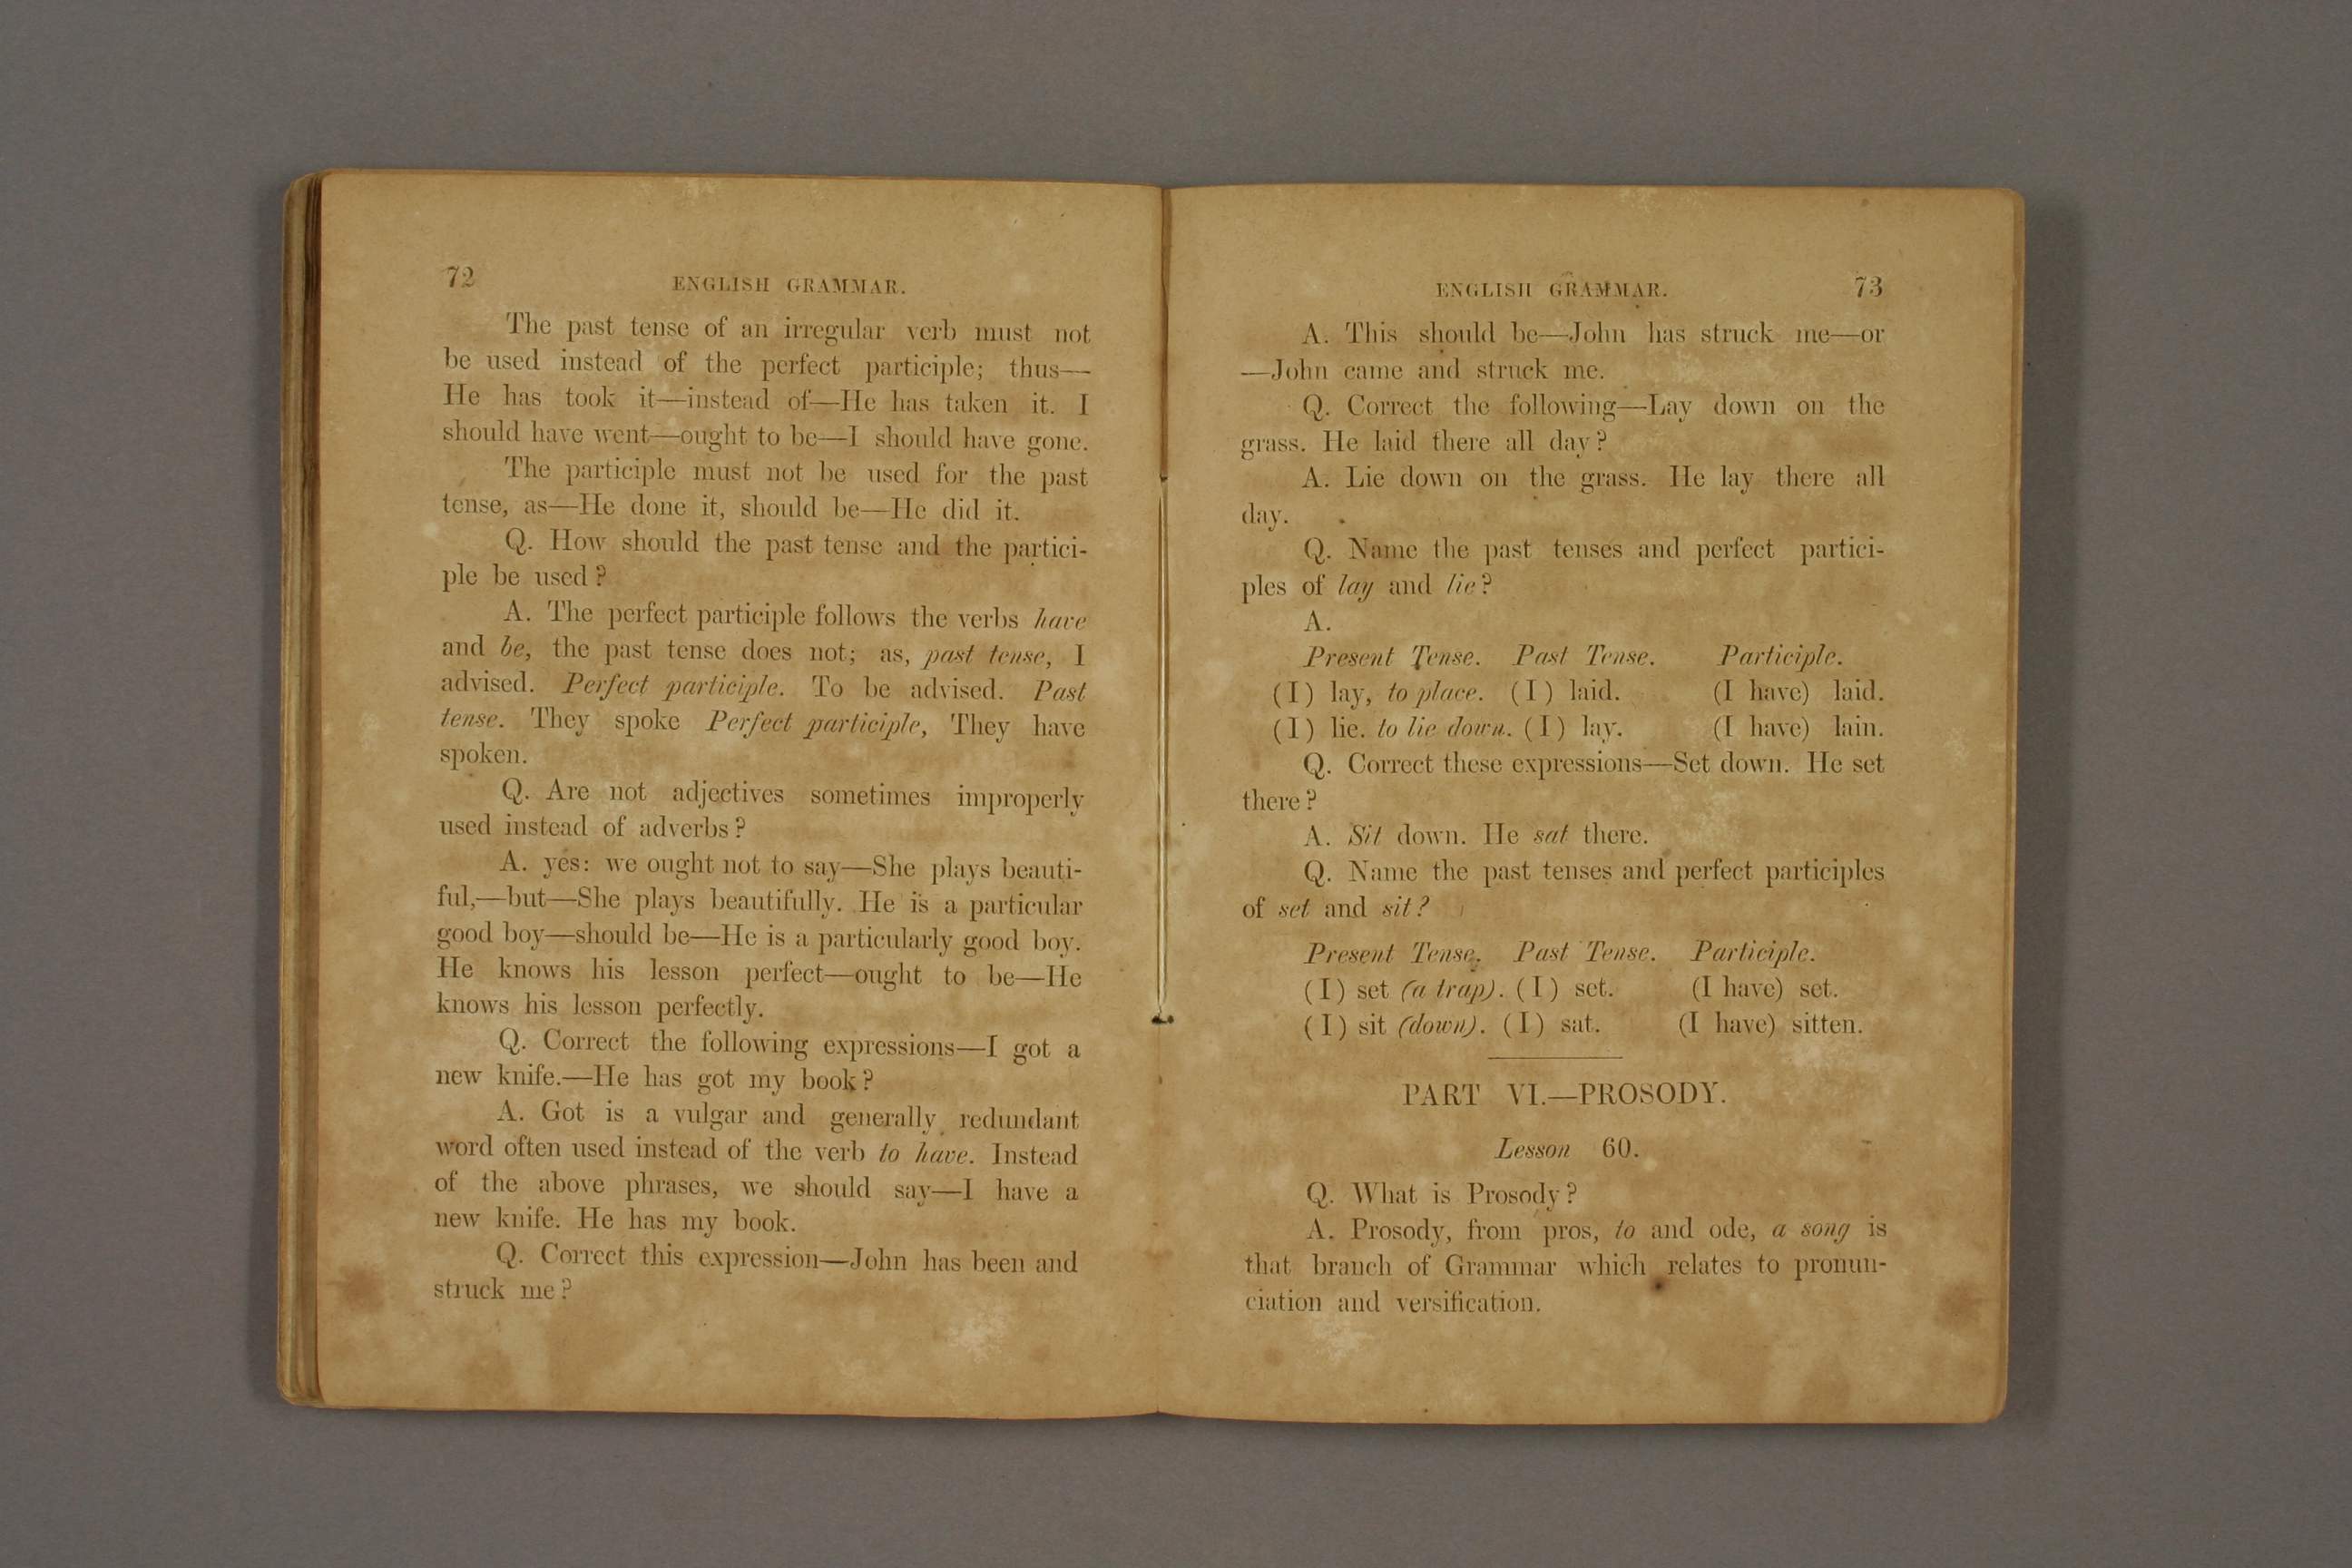 72
ENGLISH GRAMMAR.
The past tense of an irregular verb must not
be used instead of the perfect participle; thus—
He has took it—instead of—He has taken it. I
should have went—ought to be—I should have gone.
The participle must not be used for the past
tense, as—He done it, should be—He did it.
Q. How should the past tense and the partici-
ple be used?
A. The perfect participle follows the verbs have
and be, the past tense does not; as, past tense, I
advised. Perfect participle. To be advised. Past
tense. They spoke Perfect participle, They have
spoken.
Q. Are not adjectives sometimes improperly
used instead of adverbs?
A. yes: we ought not to say—She plays beauti-
ful,—but—She plays beautifully. He is a particular
good boy—should be—He is a particularly good boy.
He knows his lesson perfect—ought to be—He
knows his lesson perfectly.
Q. Correct the following expressions—I got a
new knife.—He has got my book?
A. Got is a vulgar and generally redundant
word often used instead of the verb to have. Instead
of the above phrases, we should say—I have a
new knife. He has my book.
Q. Correct this expression—John has been and
struck me?
ENGLISH GRAMMAR.
73
A. This should be—John has struck me—or
—John came and struck me.
Q. Correct the following—Lay down on the
grass. He laid there all day?
A. Lie down on the grass. He lay there all
day.
Q. Name the past tenses and perfect partici-
ples of lay and lie?
A.
Present Tense. Past Tense. Participle.
(I) lay, to place. (I) laid. (I have) laid.
(I) lie. to lie down. (I) lay. (I have) lain.
Q. Correct these expressions—Set down. He set
there?
A. Sit down. He sat there.
Q. Name the past tenses and perfect participles
of set and sit?
Present Tense. Past Tense. Participle.
(I) set (a trap). (I) set. (I have) set.
(I) sit (down). (I) sat. (I have) sitten.
PART VI.—PROSODY.
Lesson 60.
Q. What is Prosody?
A. Prosody, from pros, to and ode, a song is
that branch of Grammar which relates to pronun-
ciation and versification.